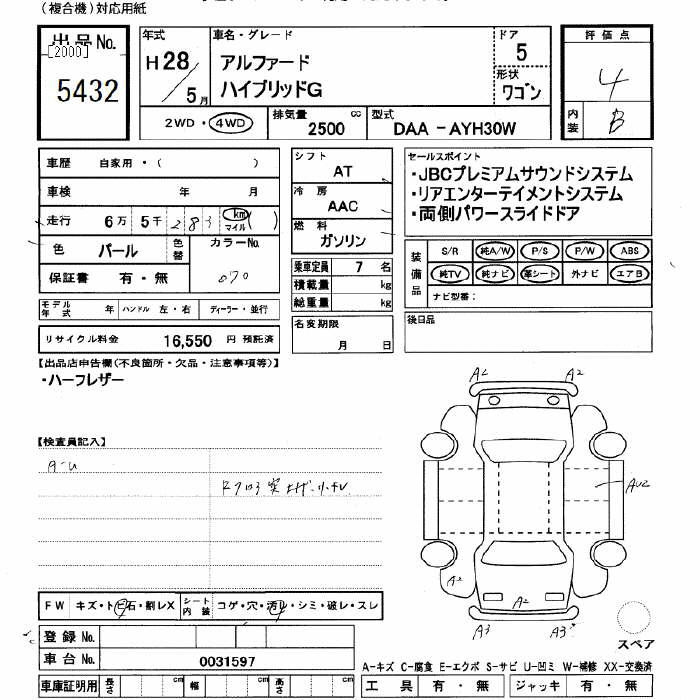 (複合機)対応用紙
出品No.
[2000]
5432
年式
H28/5月
車名・グレード
アルファード
ハイブリッドG
ドア
5
形状
ワゴン
評価点
4
内装
B
2WD・4WD
排気量
2500 cc
型式
DAA -AYH30W
車歴 自家用・( )
車検 年 月
走行 6万 5千 283 km マイル ( )
色 パール 色替 カラーNo.
070
保証書 有・無
シフト
AT
冷房
AAC
燃料
ガソリン
乗車定員 7 名
積載量 kg
総重量 kg
セールスポイント
・JBCプレミアムサウンドシステム
・リアエンターテイメントシステム
・両側パワースライドドア
装備品
S/R 純A/W P/S P/W ABS
純TV 純ナビ 革シート 外ナビ エアB
ナビ型番:
モデル年式 年 ハンドル 左・右 ディーラー・並行
リサイクル料金 16,550 円 預託済
名変期限
月 日
後日品
【出品店申告欄(不良箇所・欠品・注意事項等)】
・ハーフレザー
【検査員記入】
A2 A2
AU2
A2
A2
A3 A3
スペア
FW キズ・トビ石・割レX シート内装 コゲ・穴・汚レ・シミ・破レ・スレ
登録No.
車台No. 0031597
A-キズ C-腐食 E-エクボ S-サビ U-凹ミ W-補修 XX-交換済
車庫証明用 長さ cm 幅 cm 高さ cm
工具 有・無 ジャッキ 有・無